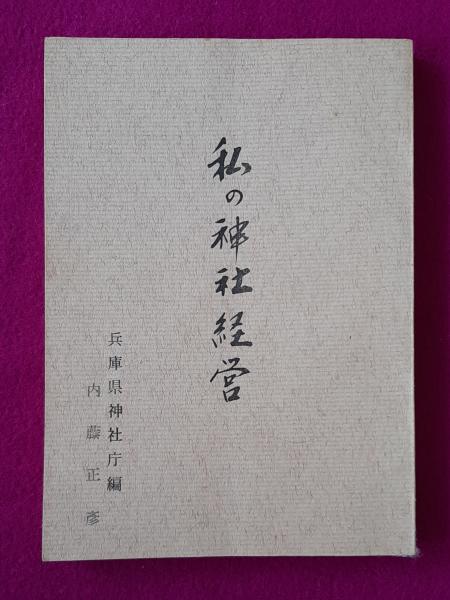 私の神社経営
兵庫県神社庁編
内藤正彦